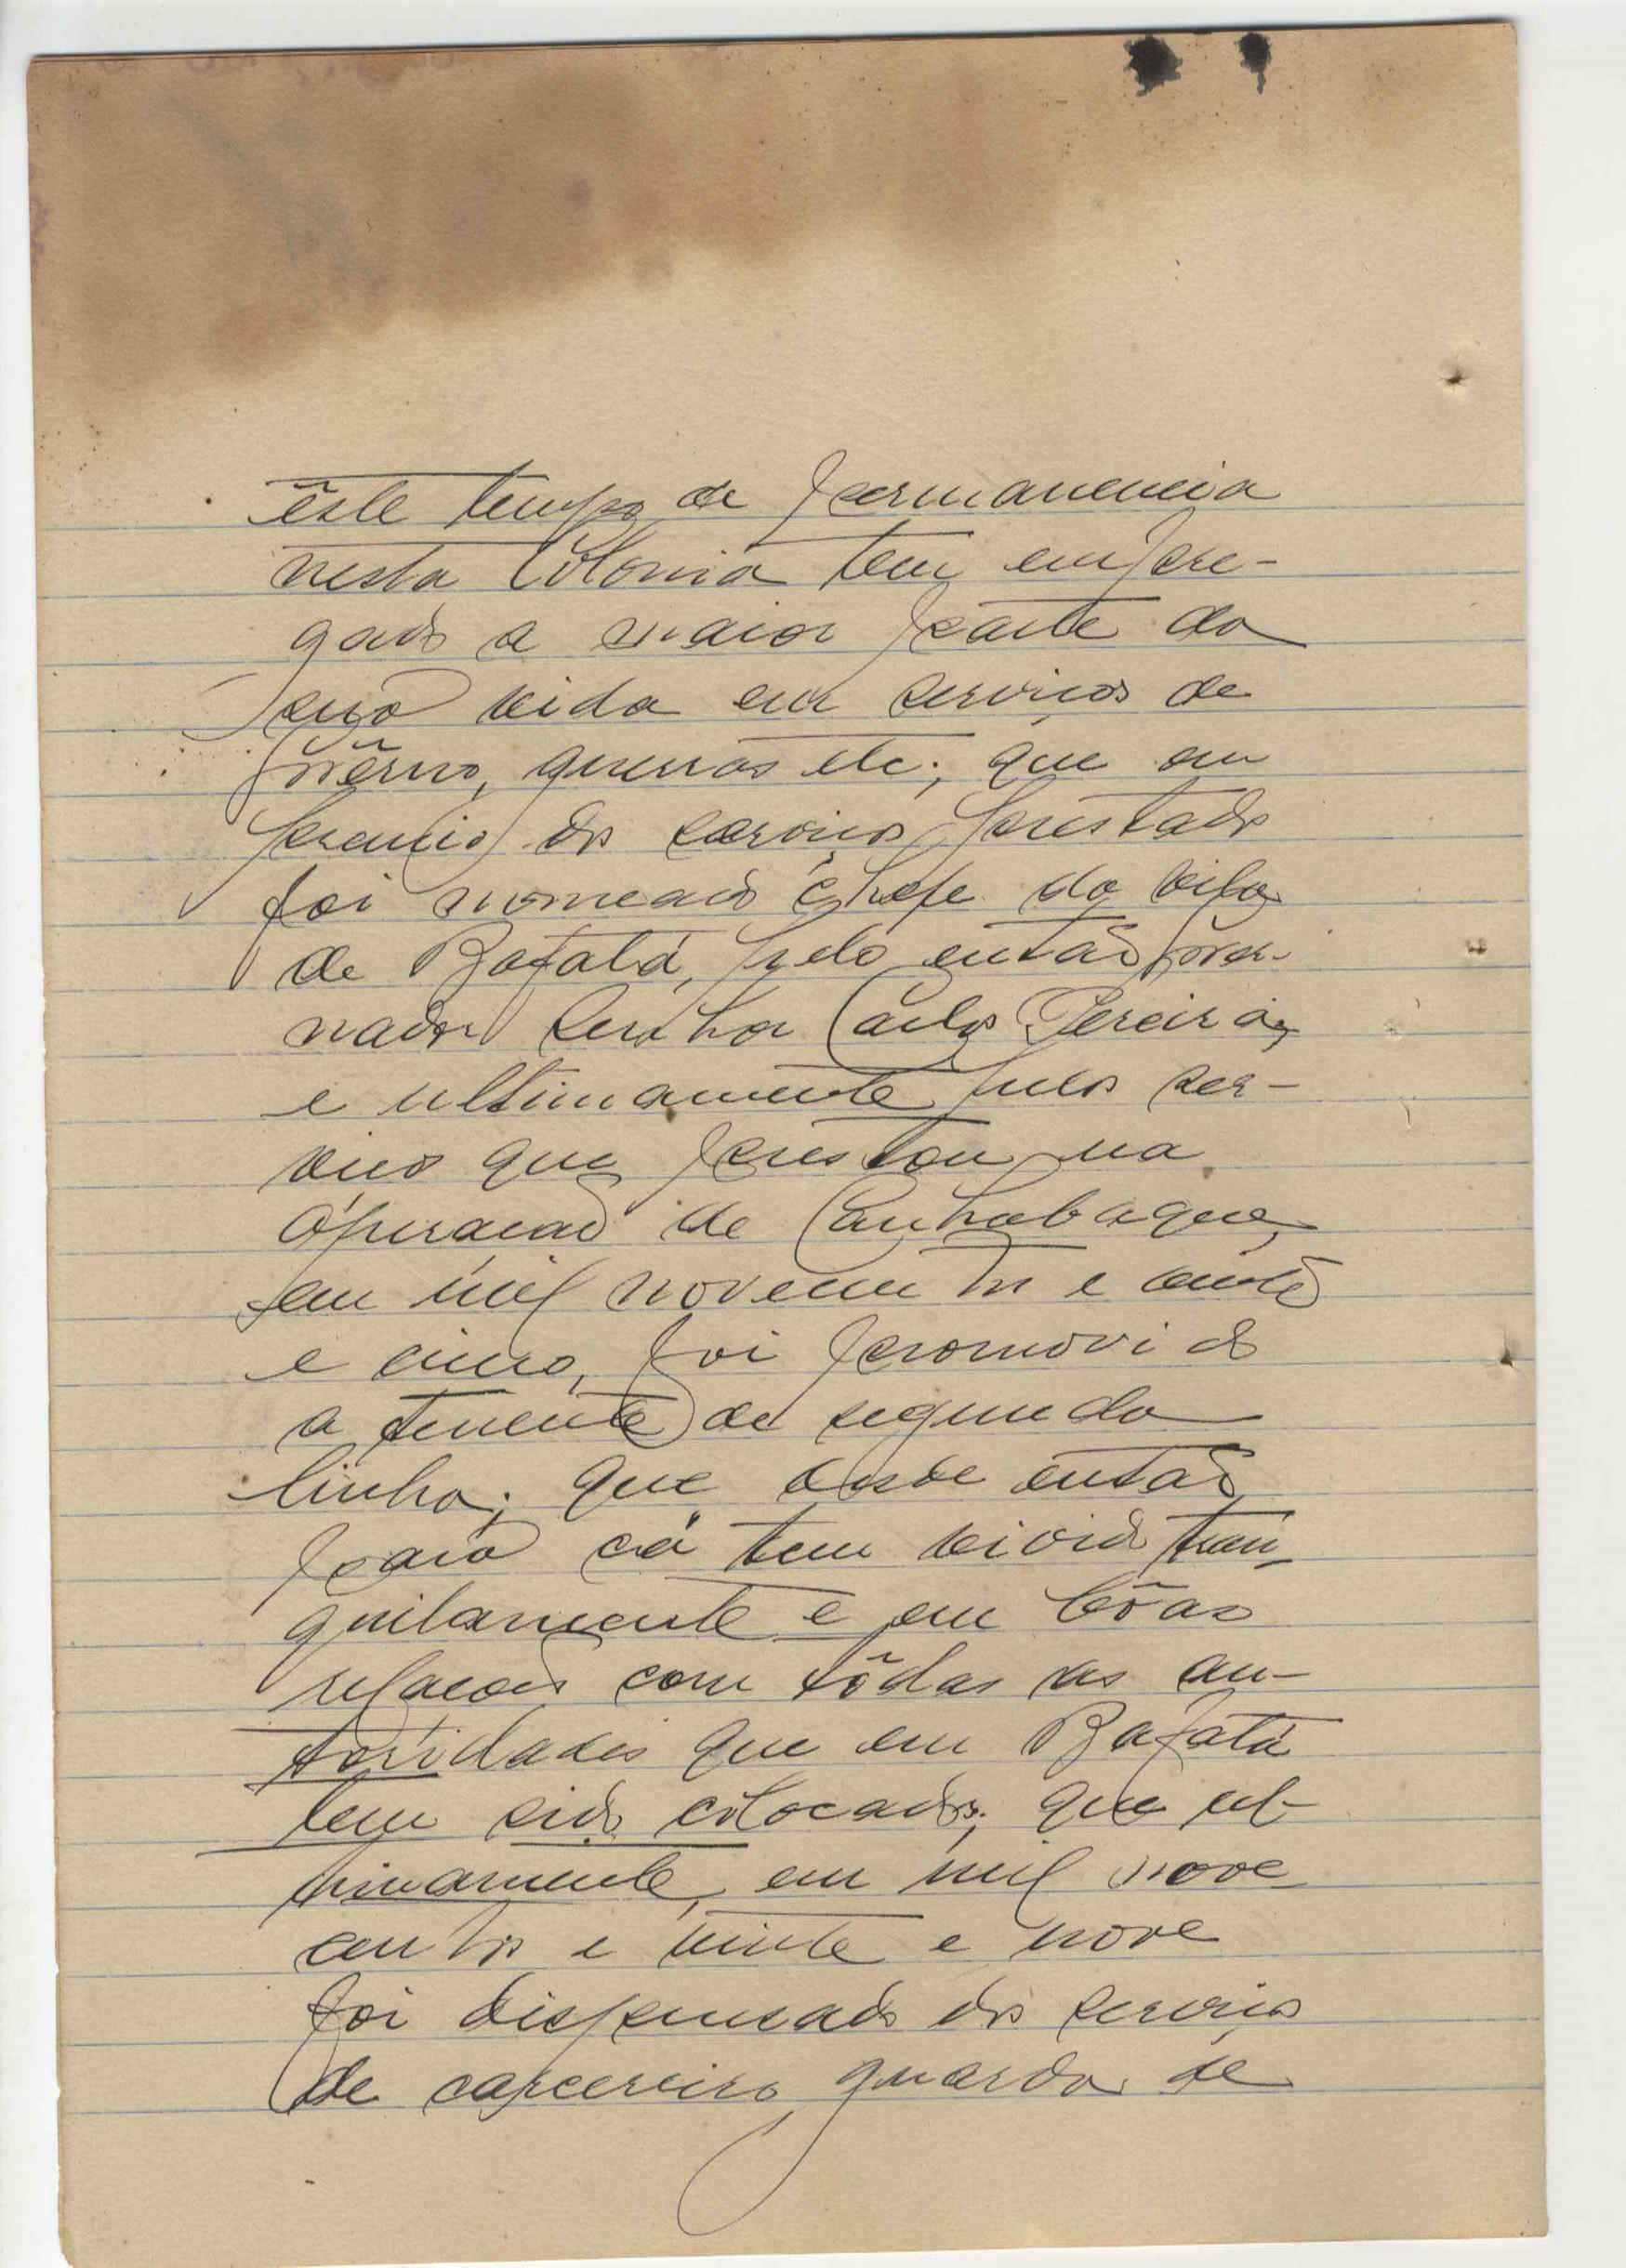 êste tempo de permanencia
nesta Colonia tem empre-
gado a maior parte da
sua vida em serviços de
Govêrno, guerras etc; que em
premio dos serviços prestados
foi nomeado chefe da vila
de Bafatá, pelo então Gover-
nador Senhor Carlos Pereira,
e ultimamente pelos ser-
viços que prestou na
operacão de Canhabaque,
em mil novecentos e vinte
e cinco, foi promovido
a tenente de segunda
linha; que desde então
para cá tem vivido tran-
quilamente e em bôas
relacões com tôdas as au-
toridades que em Bafatá
tem sido colocados; que ul-
timamente, em mil nove
centos e vinte e nove
foi dispensado do serviço
de carcereiro, guarda de